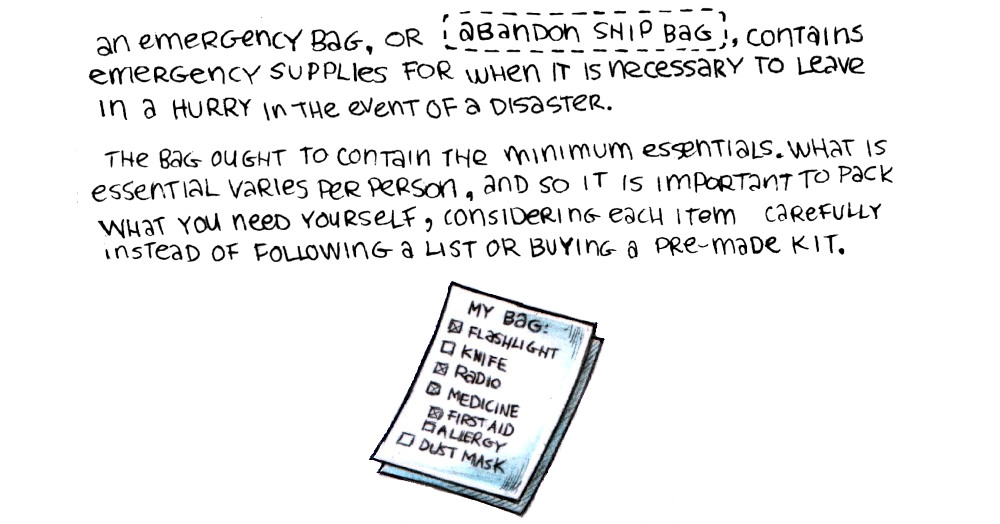 an emergency bag, or abandon ship bag, contains
emergency supplies for when it is necessary to leave
in a hurry in the event of a disaster.
The bag ought to contain the minimum essentials. What is
essential varies per person, and so it is important to pack
what you need yourself, considering each item carefully
instead of following a list or buying a pre-made kit.
MY BAG:
FLASHLIGHT
KNIFE
RADIO
MEDICINE
FIRST AID
ALLERGY
DUST MASK